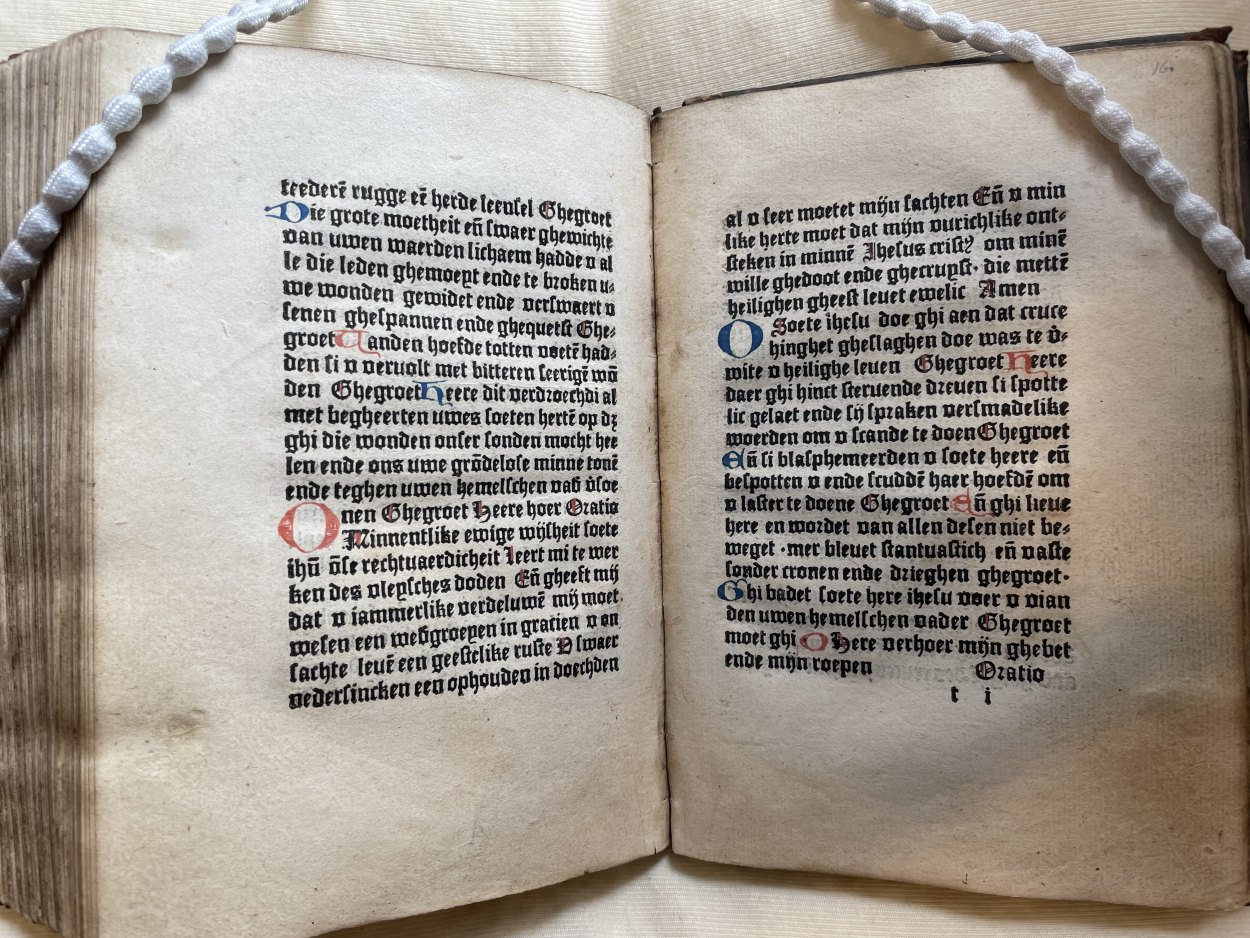 teederē rugge eñ herde leensel Ghegroet
Die grote moetheit eñ swaer ghewichte
van uwen waerden lichaem hadde v al
le die leden ghemoeyt ende te broken u⸗
we wonden gewidet ende verswaert v
senen ghespannen ende ghequetst Ghe⸗
groet Uanden hoefde totten voetē had⸗
den si v vervolt met bitteren seerigē wō
den Ghegroet Heere dit verdroechdi al
met begheerten uwes soeten hertē op dz
ghi die wonden onser sonden mocht hee
len ende ons uwe grōdelose minne tonē
ende teghen uwen hemelschen vad̄ v̄soe
nen Ghegroet Heere hoer Oratio
O Minnentlike ewige wijsheit soete
ihū ōse rechtuaerdicheit leert mi te wer
ken des vleysches doden Eñ gheeft mij
dat v iammerlike verdeluwē mij moet
wesen een wed̄groeyen in gratien v on
sachte leuē een geestelike ruste V swaer
nedersincken een ophouden in doechden
16.
al v seer moetet mijn sachten Eñ v min
like herte moet dat mijn vurichlike ont⸗
steken in minnē Ihesus cristꝰ om minē
wille ghedoot ende ghecruyst· die mettē
heilighen gheest leuet ewelic Amen
O Soete ihesu doe ghi aen dat cruce
hinghet gheslaghen doe was te v̄⸗
wite v heilighe leuen Ghegroet Heere
daer ghi hinct steruende dreuen si spotte
lic gelaet ende sij spraken versmadelike
woerden om v scande te doen Ghegroet
Eñ si blasphemeerden v soete heere eñ
bespotten v ende scuddē haer hoefdē om
v laster te doene Ghegroet Eñ ghi lieue
here en wordet van allen desen niet be⸗
weget ·mer bleuet stantuastich eñ vaste
sonder cronen ende drieghen ghegroet·
Ghi badet soete here ihesu voer v vian
den uwen hemelschen vader Ghegroet
moet ghi O Here verhoer mijn ghebet
ende mijn roepen Oratio
t i